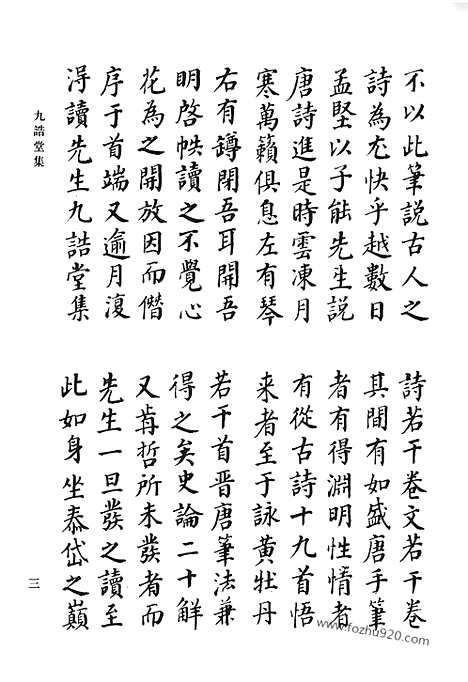 不以此筆説古人之
詩為尤快乎越數日
孟堅以子能先生説
唐詩進是時雲凍月
寒萬籟俱息左有琴
右有罇閉吾耳開吾
明啓帙讀之不覺心
花為之開放因而僭
序于首端又逾月復
淂讀先生九誥堂集
詩若干卷文若干卷
其間有如盛唐手筆
者有得淵明性情者
有從古詩十九首悟
来者至于詠黄牡丹
若干首晋唐筆法兼
得之矣史論二十觧
又肯哲所未發者而
先生一旦發之讀至
此如身坐泰岱之巔
九誥堂集
三
www.fozhu920.com